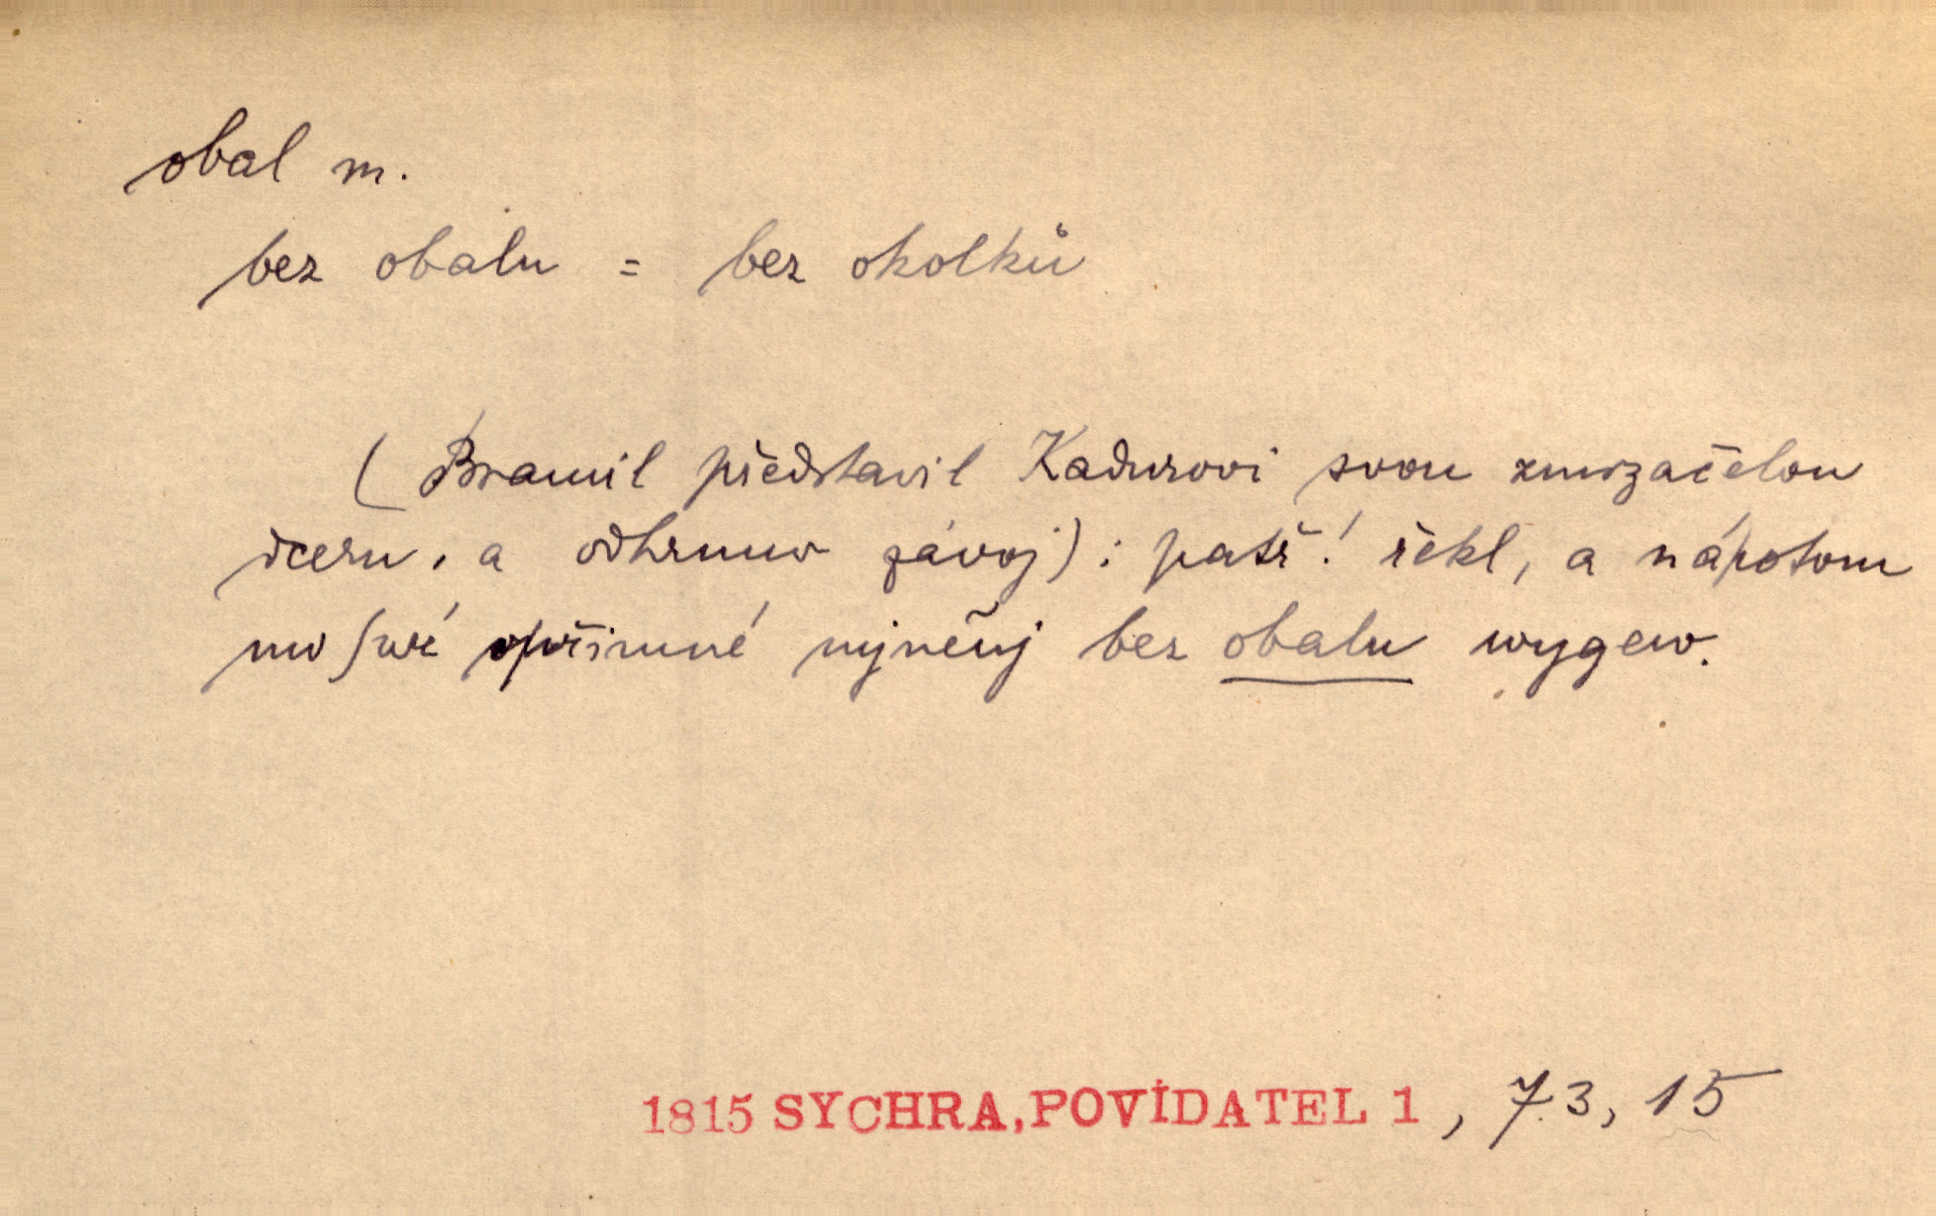 obal m.
bez obalu = bez okolků
( Bramil představil Kadurovi svou zmrzačelou
dceru, a odhrnuw závoj) : patř! řekl, a nápotom
mu ſwé vpřimné mjněnj bez obalu wygew.
1815 SYCHRA, POVÍDATEL 1 , 73, 15